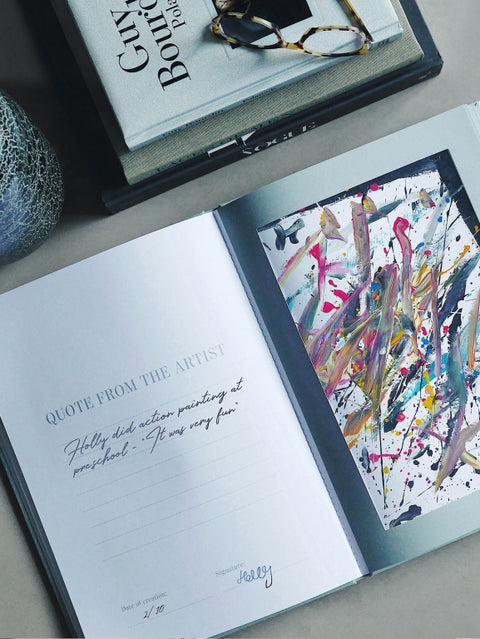 Guy
Bourdin
Polaroids
VOGUE
QUOTE FROM THE ARTIST
Holly did action painting at
preschool - "It was very fun"
Date of creation:
2/10
Signature:
Holly